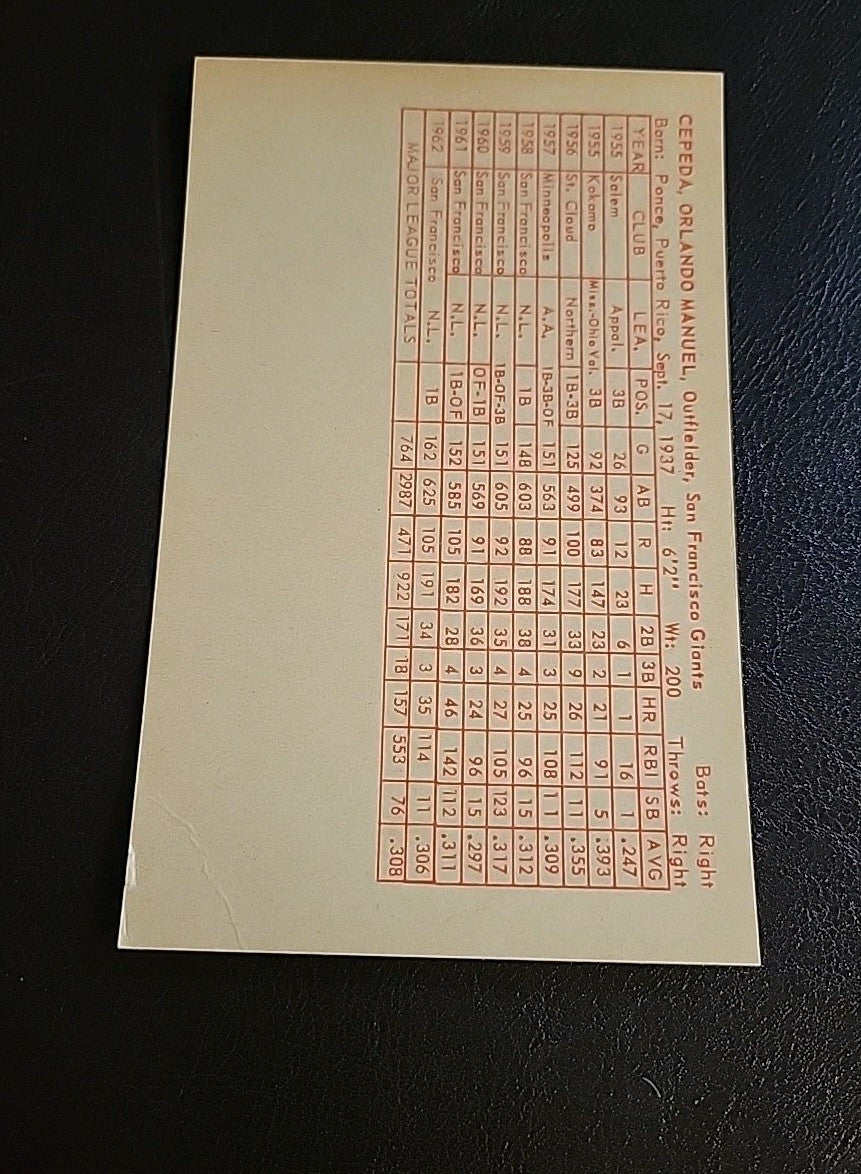 CEPEDA, ORLANDO MANUEL, Outfielder, San Francisco Giants Bats: Right
Born: Ponce, Puerto Rico, Sept. 17, 1937 Ht: 6'2" Wt: 200 Throws: Right
YEAR CLUB LEA. POS. G AB R H 2B 3B HR RBI SB AVG
1955 Salem Appal. 3B 26 93 12 23 6 1 1 16 1 .247
1955 Kokomo Miss.-Ohio Val. 3B 92 374 83 147 23 2 21 91 5 .393
1956 St. Cloud Northern 1B-3B 125 499 100 177 33 9 26 112 11 .355
1957 Minneapolis A.A. 1B-3B-OF 151 563 91 174 31 3 25 108 11 .309
1958 San Francisco N.L. 1B 148 603 88 188 38 4 25 96 15 .312
1959 San Francisco N.L. 1B-OF-3B 151 605 92 192 35 4 27 105 123 .317
1960 San Francisco N.L. OF-1B 151 569 91 169 36 3 24 96 15 .297
1961 San Francisco N.L. 1B-OF 152 585 105 182 28 4 46 142 112 .311
1962 San Francisco N.L. 1B 162 625 105 191 34 3 35 114 11 .306
MAJOR LEAGUE TOTALS 764 2987 471 922 171 18 157 553 76 .308